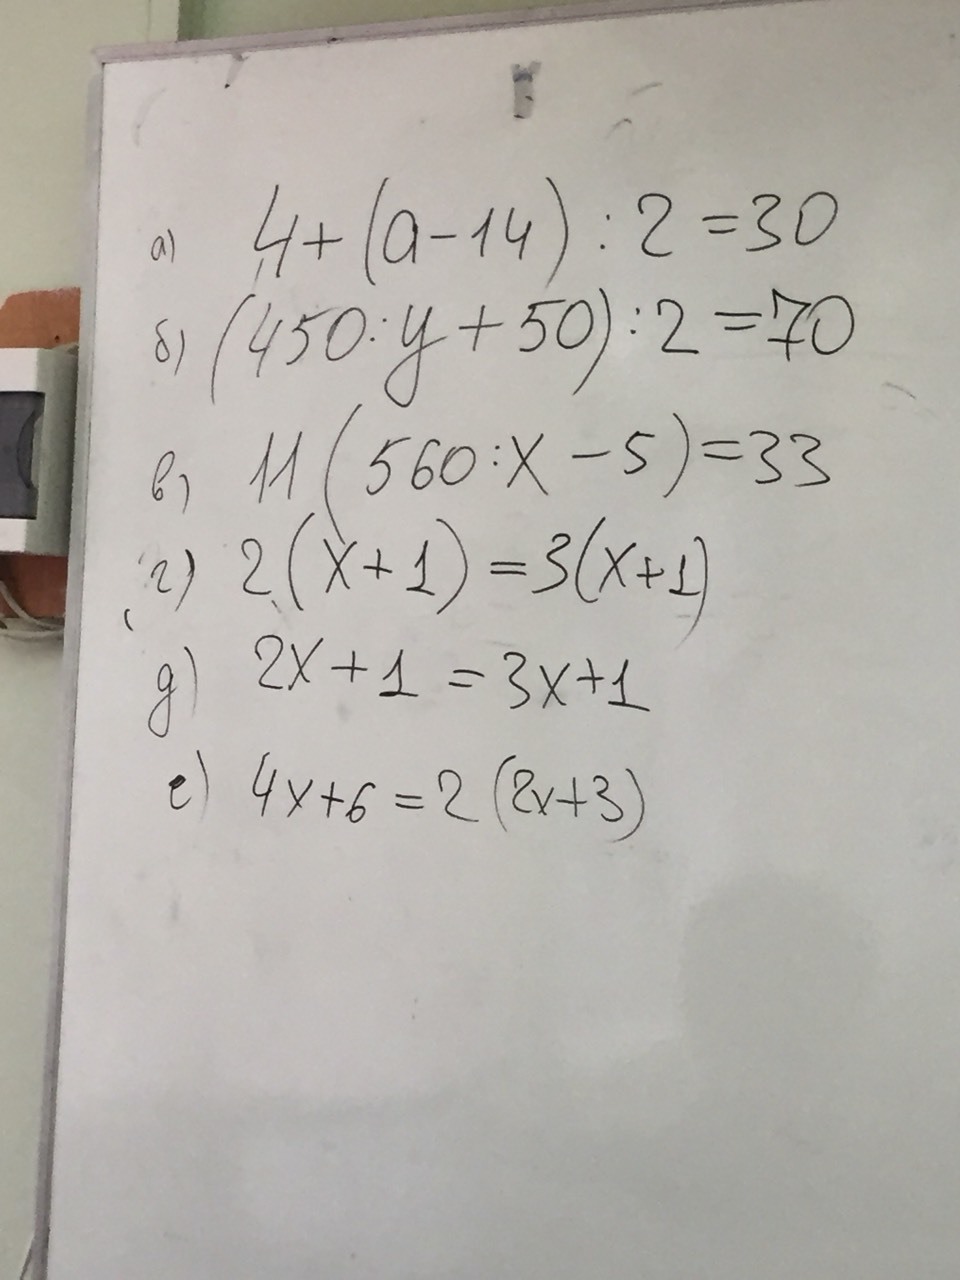 а) 4+(a-14):2=30
б) (450:y+50):2=70
в) 11(560:x-5)=33
г) 2(x+1)=3(x+1)
д) 2x+1=3x+1
е) 4x+6=2(2x+3)